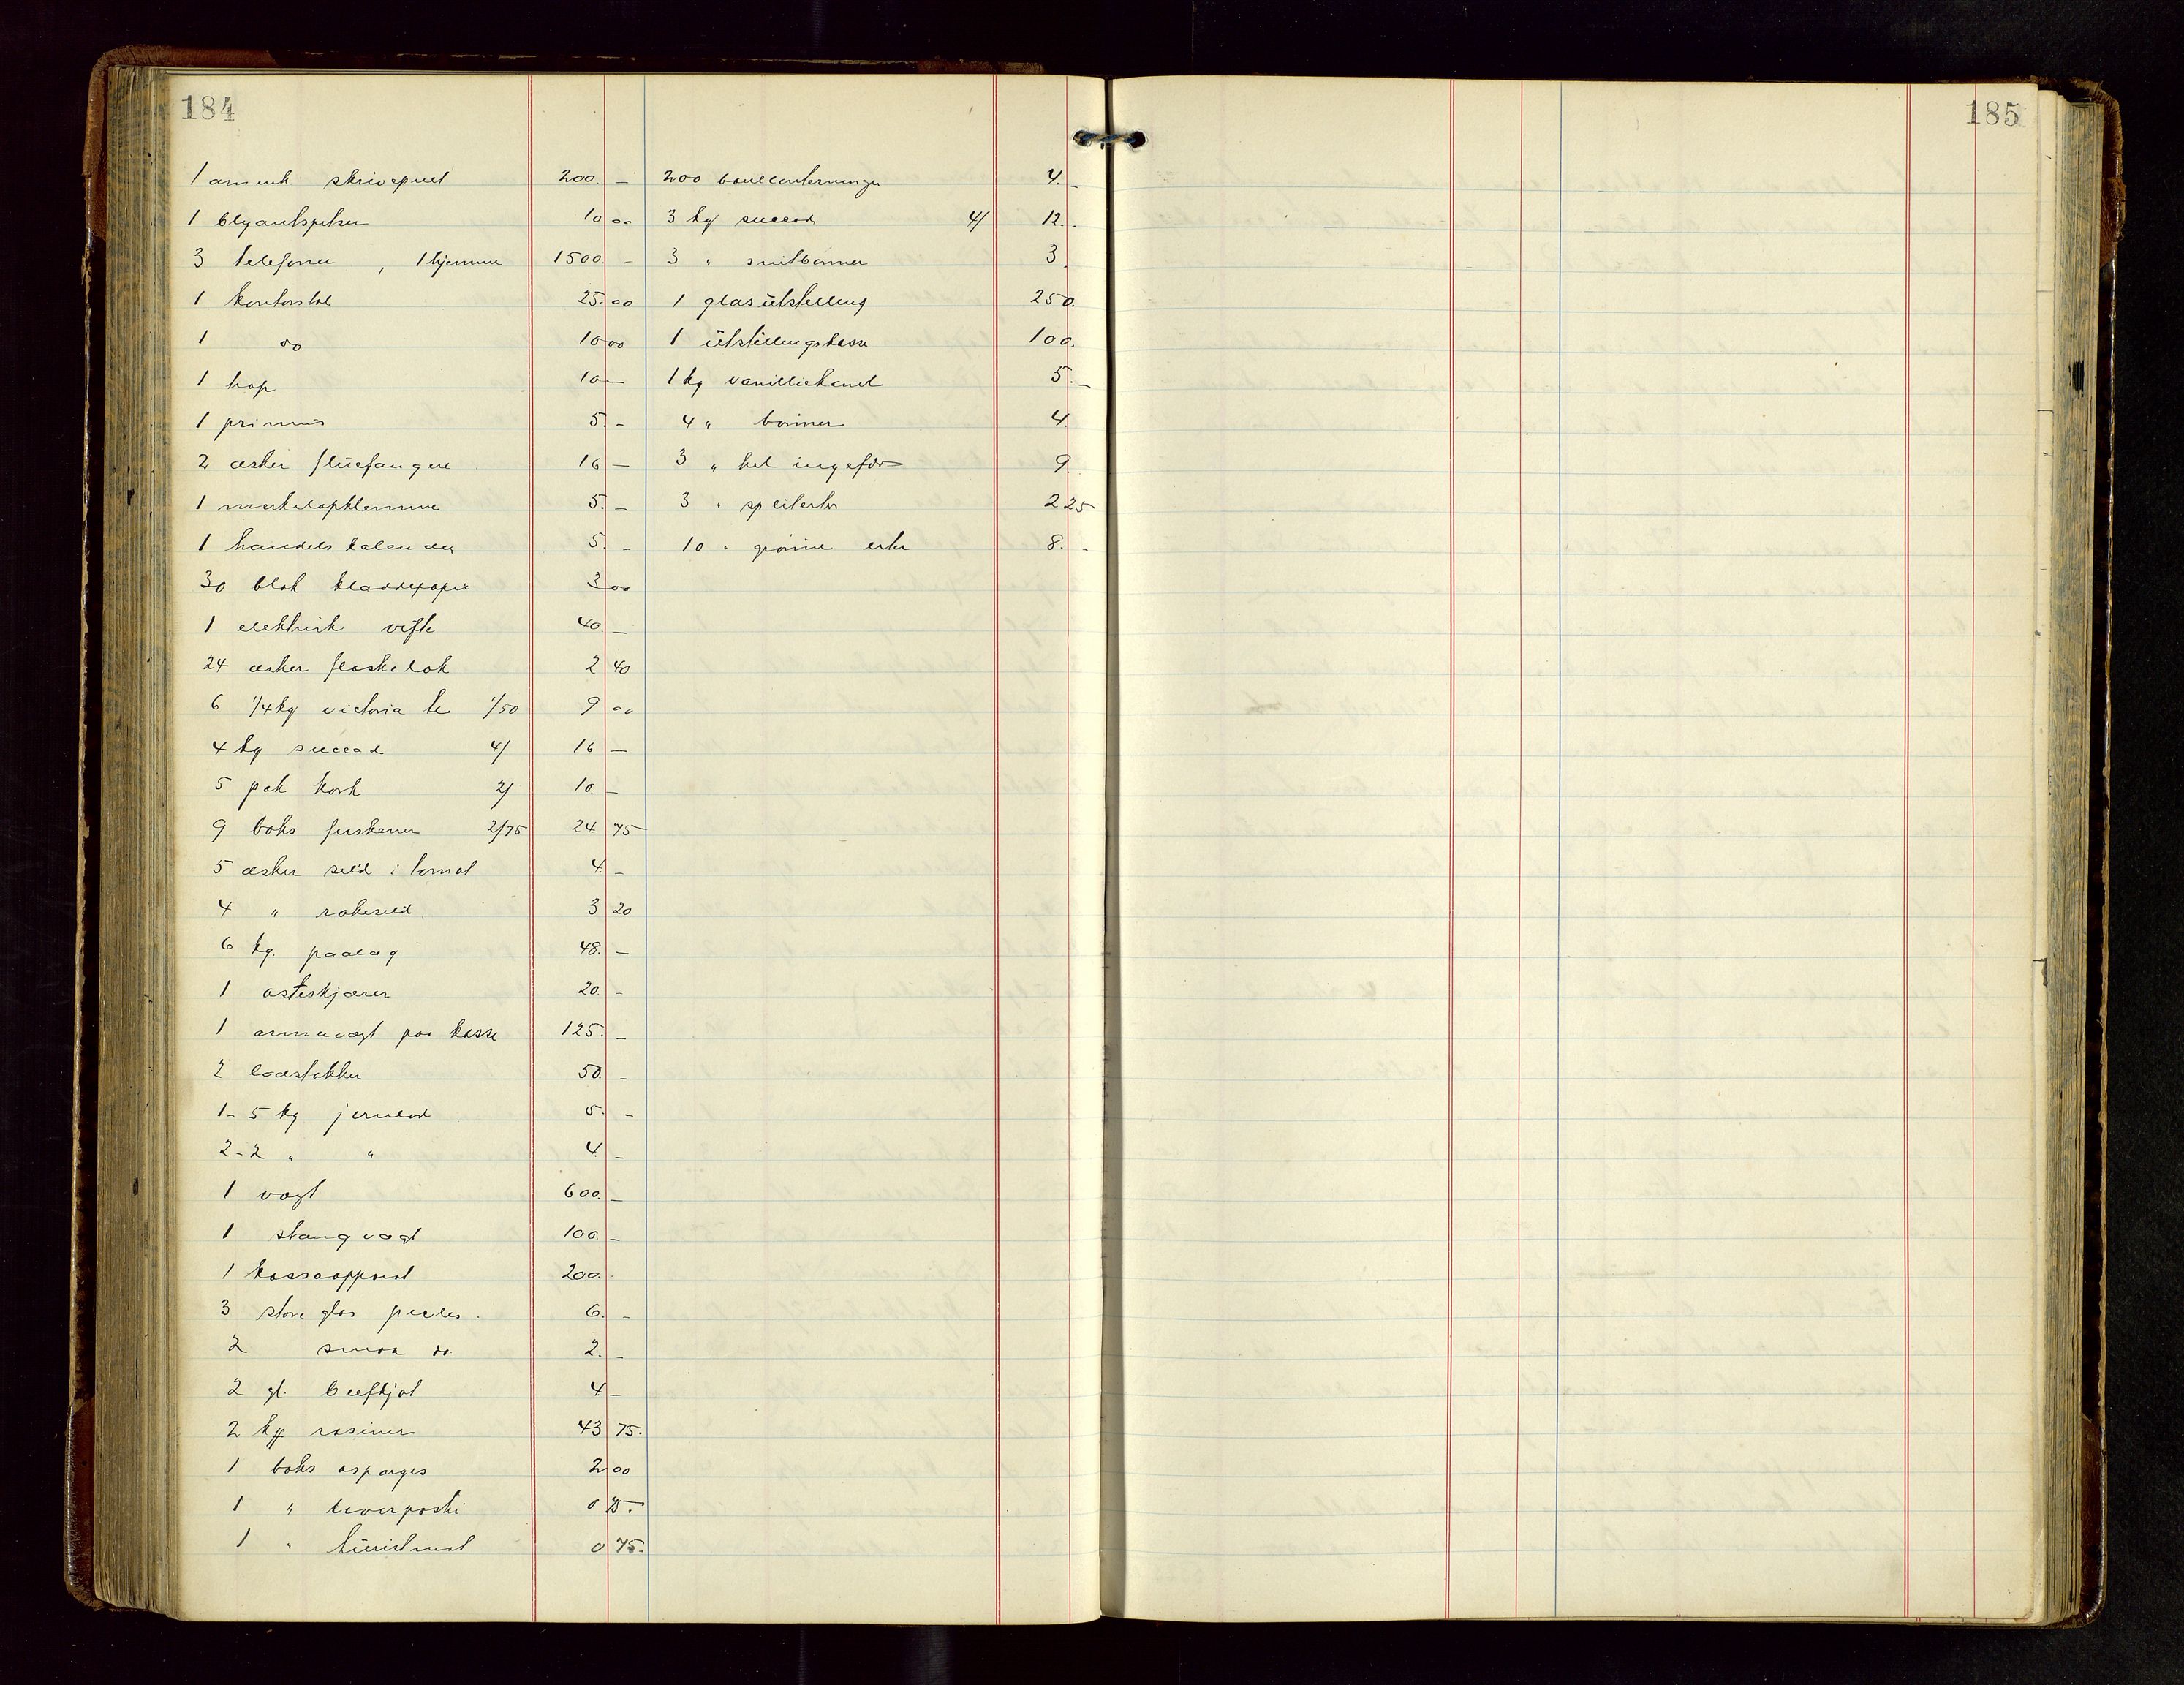 184
1 amerik. skrivepult 200. –
1 blyantspitser 10 00
3 telefoner, 1 hjemme 1500. –
1 kontorstol 25. 00
1 do 10 00
1 10 –
1 primus 5. –
2 æsker fluefangere 16 –
1 5. –
1 handelskalender 5. –
30 blok kladdepapir 3 00
1 elektrisk vifte 40. –
24 æsker flaskelak 2 40
6 1/4 kg victoria te 1/50 9 00
4 kg succad 4/ 16 –
5 pak kork 2/ 10 –
9 boks ferskener 2/75 24 75
5 æsker sild i tomat 4. –
4 " røkesild 3 20
6 kg. paalæg 48. –
1 osteskjærer 20. –
1 paa kasse 125. –
2 lodstokker 50. –
1 - 5 kg jernlod 5. –
2 - 2 " " 4. –
1 vægt 600. –
1 stangvægt 100. –
1 kassaapparat 200.
3 store glas picles. 6. –
2 smaa do. 2. –
2 gl. beefkjøt 4 –
2 kg rosiner 43 75.
1 boks asparges 2 00
1 " leverpostei 0 75.
1 " turistmat 0 75.
200 bouillonterninger 4. –
3 kg succad 4/ 12. –
3 " snitbønner 3.
1 glasutstilling 250.
1 utstillingskasse 100.
1 kg vanilliekanel 5. –
4 " bønner 4.
3 " hel ingefær 9
3 " spliterter 2 25
10 " grønne erter 8. –
185